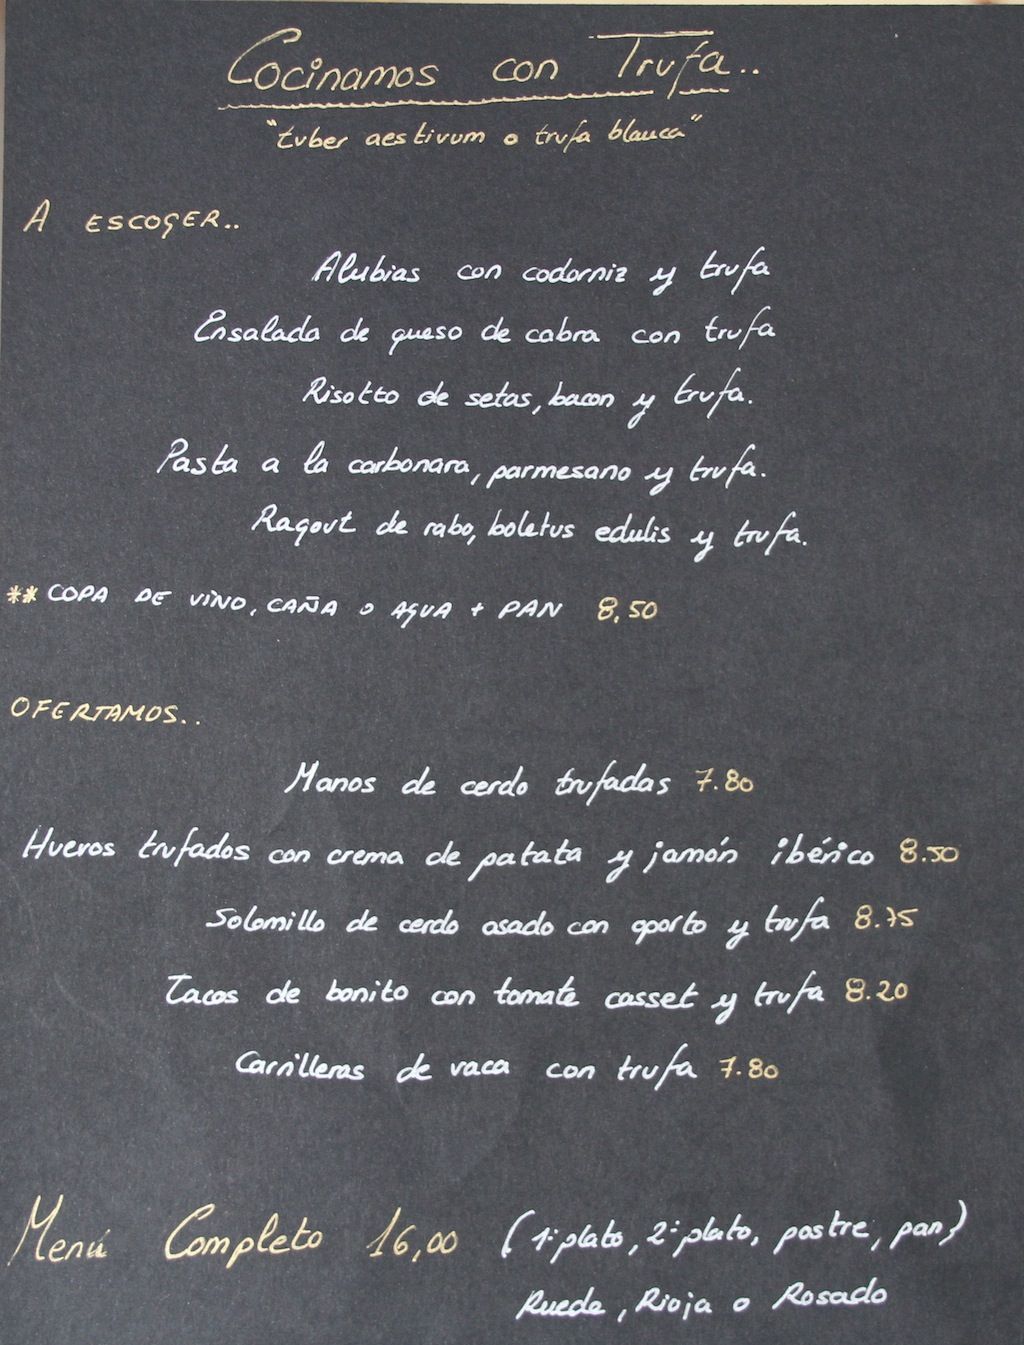 Cocinamos con Trufa..
"tuber aestivum o trufa blanca"
A ESCOGER..
Alubias con codorniz y trufa
Ensalada de queso de cabra con trufa
Risotto de setas, bacon y trufa.
Pasta a la carbonara, parmesano y trufa.
Ragout de rabo, boletus edulis y trufa.
** COPA DE VINO, CAÑA O AGUA + PAN 8,50
OFERTAMOS..
Manos de cerdo trufadas 7.80
Huevos trufados con crema de patata y jamón ibérico 8.50
Solomillo de cerdo asado con oporto y trufa 8.75
Tacos de bonito con tomate casset y trufa 8.20
Carrilleras de vaca con trufa 7.80
Menú Completo 16,00 (1º plato, 2º plato, postre, pan)
Rueda, Rioja o Rosado